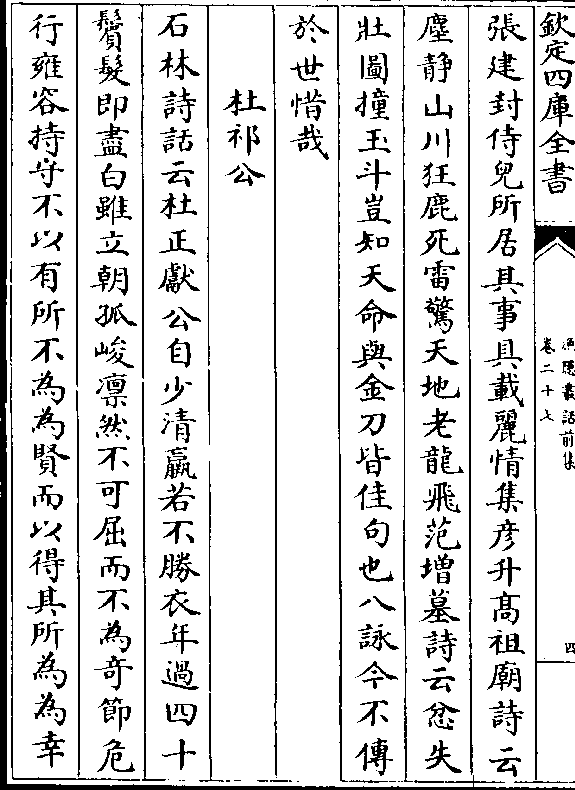 欽定四庫全書
漁隠叢話前集
卷二十七
四
張建封侍兒所居其事具載麗情集彦升髙祖廟詩云
塵静山川狂鹿死雷驚天地老龍飛范增墓詩云忿失
壯圖撞玉斗豈知天命與金刀皆佳句也八詠今不傳
於世惜哉
杜祁公
石林詩話云杜正獻公自少清羸若不勝衣年過四十
鬢髮即盡白雖立朝孤峻凛然不可屈而不為竒節危
行雍容持守不以有所不為為賢而以得其所為為幸